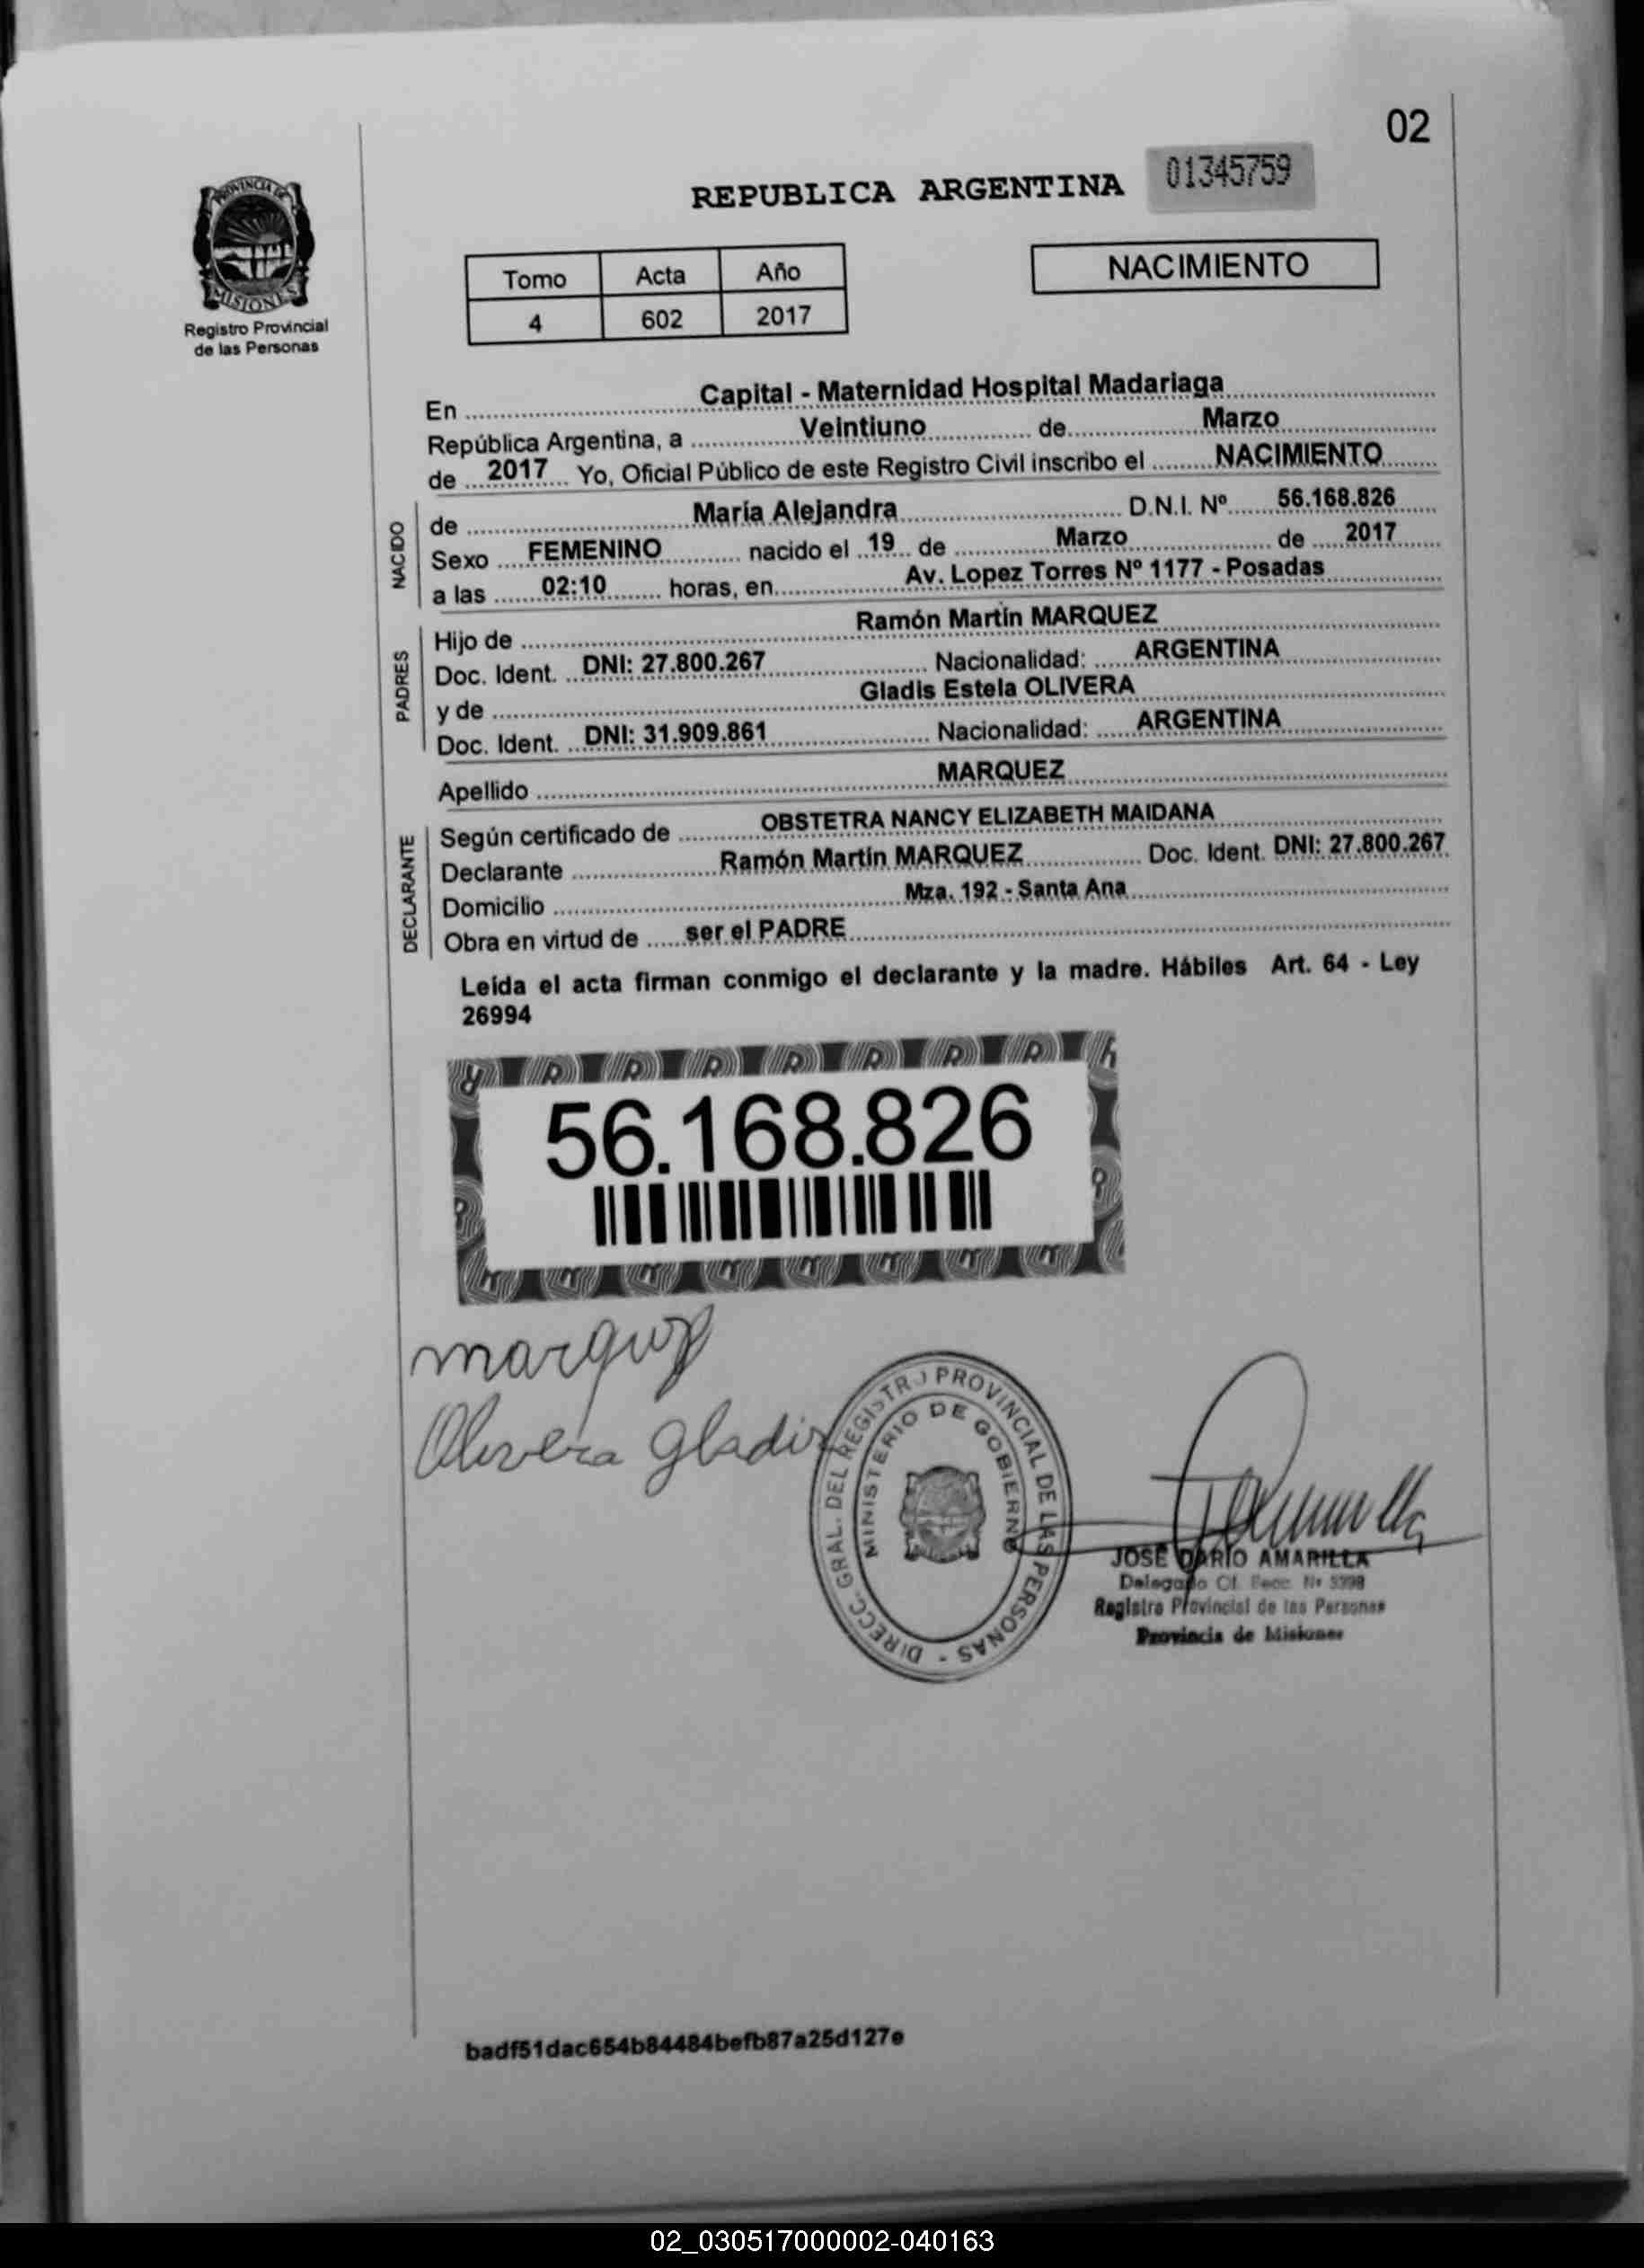 02
REPUBLICA ARGENTINA 01345759
PROVINCIA DE MISIONES
Registro Provincial
de las Personas
Tomo Acta Año
4 602 2017
NACIMIENTO
En Capital - Maternidad Hospital Madariaga
República Argentina, a Veintiuno de Marzo
de 2017 Yo, Oficial Público de este Registro Civil inscribo el NACIMIENTO
NACIDO
de María Alejandra D.N.I. Nº 56.168.826
Sexo FEMENINO nacido el 19 de Marzo de 2017
a las 02:10 horas, en Av. Lopez Torres Nº 1177 - Posadas
PADRES
Hijo de Ramón Martín MARQUEZ
Doc. Ident. DNI: 27.800.267 Nacionalidad: ARGENTINA
y de Gladis Estela OLIVERA
Doc. Ident. DNI: 31.909.861 Nacionalidad: ARGENTINA
Apellido MARQUEZ
DECLARANTE
Según certificado de OBSTETRA NANCY ELIZABETH MAIDANA
Declarante Ramón Martín MARQUEZ Doc. Ident. DNI: 27.800.267
Domicilio Mza. 192 - Santa Ana
Obra en virtud de ser el PADRE
Leída el acta firman conmigo el declarante y la madre. Hábiles Art. 64 - Ley
26994
56.168.826
marquez
Olivera gladis
DIRECC. GRAL. DEL REGISTRO PROVINCIAL DE LAS PERSONAS -
MINISTERIO DE GOBIERNO
JOSE DARIO AMARILLA
Delegado
Registro Provincial de las Personas
Provincia de Misiones
badf51dac654b84484befb87a25d127e
02_030517000002-040163